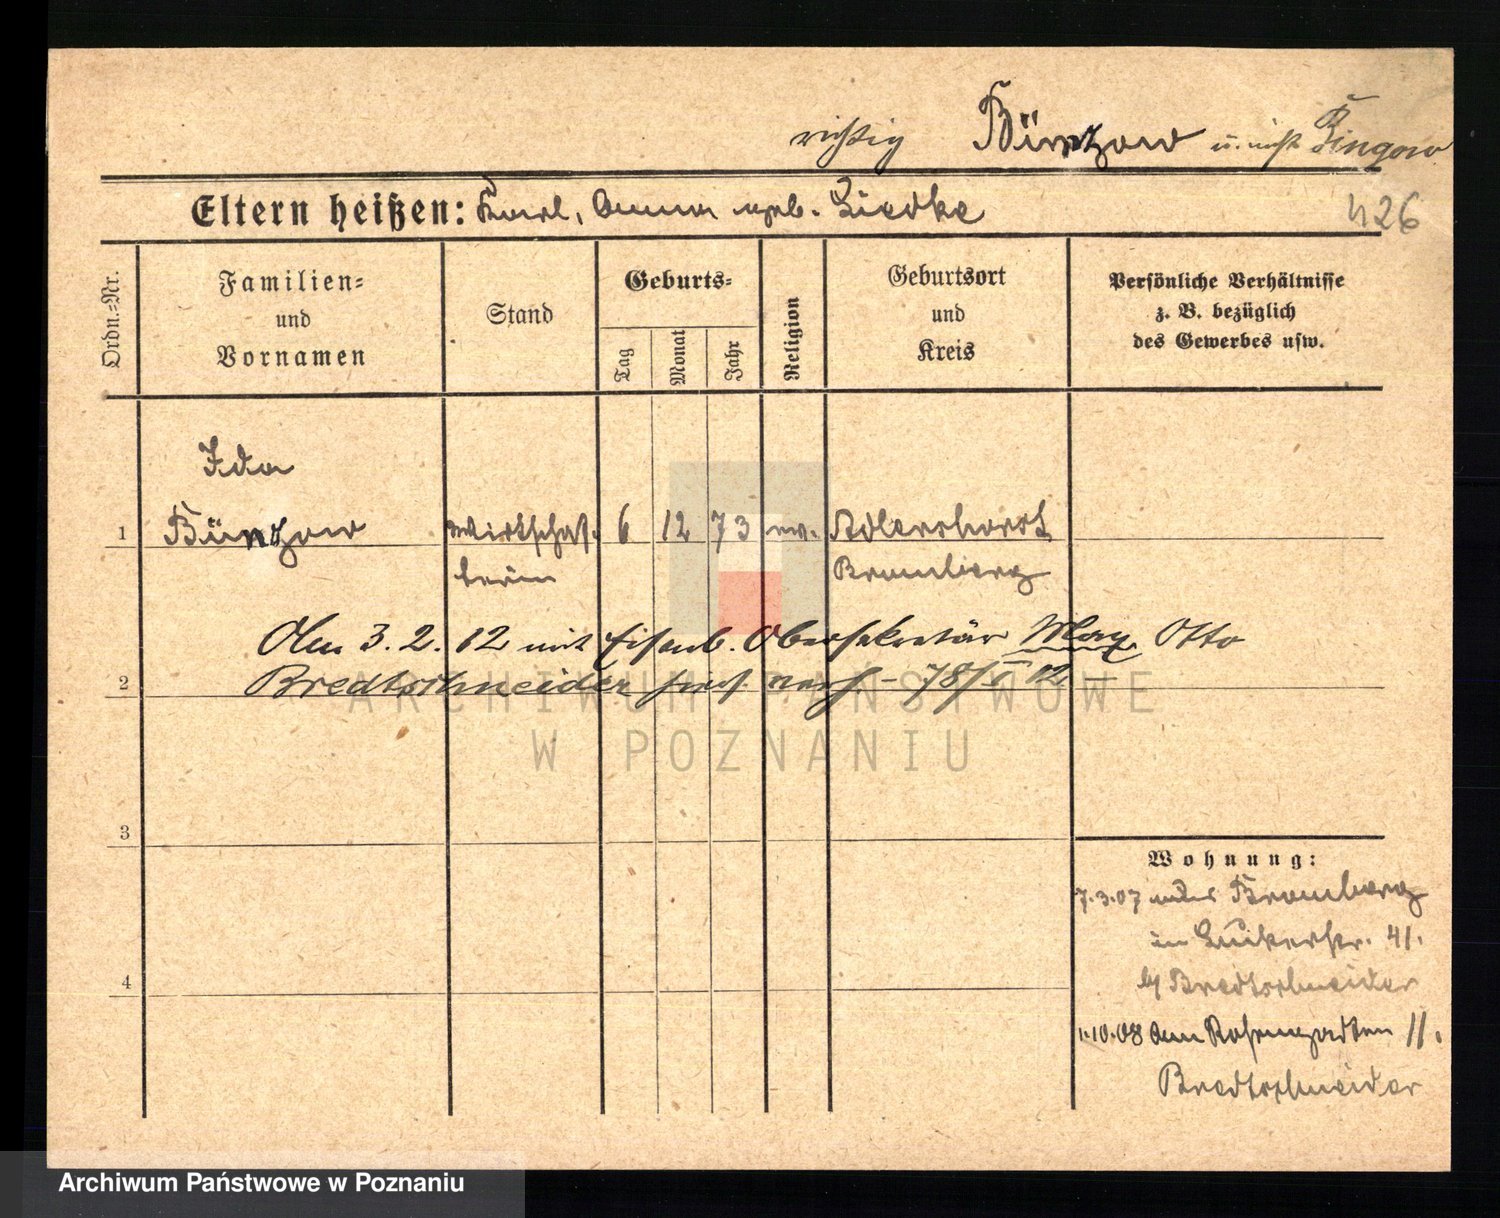 richtig Bünzow u. nicht Bingow
Eltern heißen: Karl, Anna geb. Liedke
426
Ordn.-Nr.
Familien-
und
Vornamen
Stand
Geburts-
Tag
Monat
Jahr
Religion
Geburtsort
und
Kreis
Persönliche Verhältnisse
z. B. bezüglich
des Gewerbes usw.
Ida
1 Bünzow Wirtschaf- 6 12 73 ev. Adlershorst
terin Bromberg
Am 3.2.12 mit Eisenb. Obersekretär Max Otto
2 Bredtschneider hies. verh
3
4
Wohnung:
7.3.07 Bromberg
in 41.
b/ Bredtschneider
1.10.08 Am Rosengarten 11.
Bredtschneider
ARCHIWUM PAŃSTWOWE
W POZNANIU
Archiwum Państwowe w Poznaniu